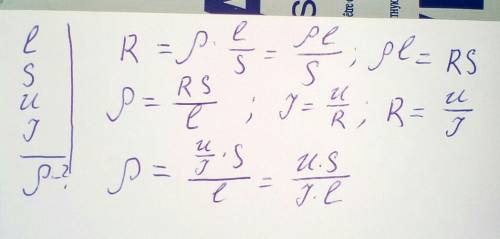 l
S
u
J
ρ-?
R = ρ · l/S = ρl/S ; ρl = RS
ρ = RS/l ; J = u/R ; R = u/J
ρ = (u/J · S)/l = u·S/J·l